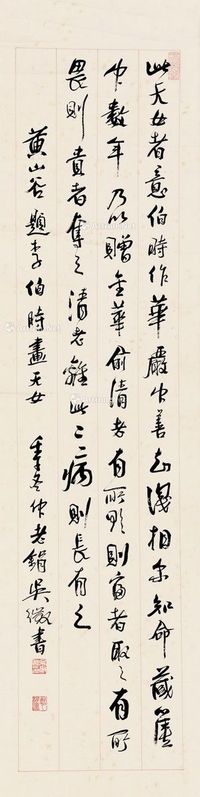 此天女者意伯時作華嚴中善知識相爾知命藏篋
中數年乃以贈金華俞清老有所則富者取之有所
畏則貴者奪之清老離此二病則長有之
黃山谷題李伯時畫天女 季冬老鋗吳徵書